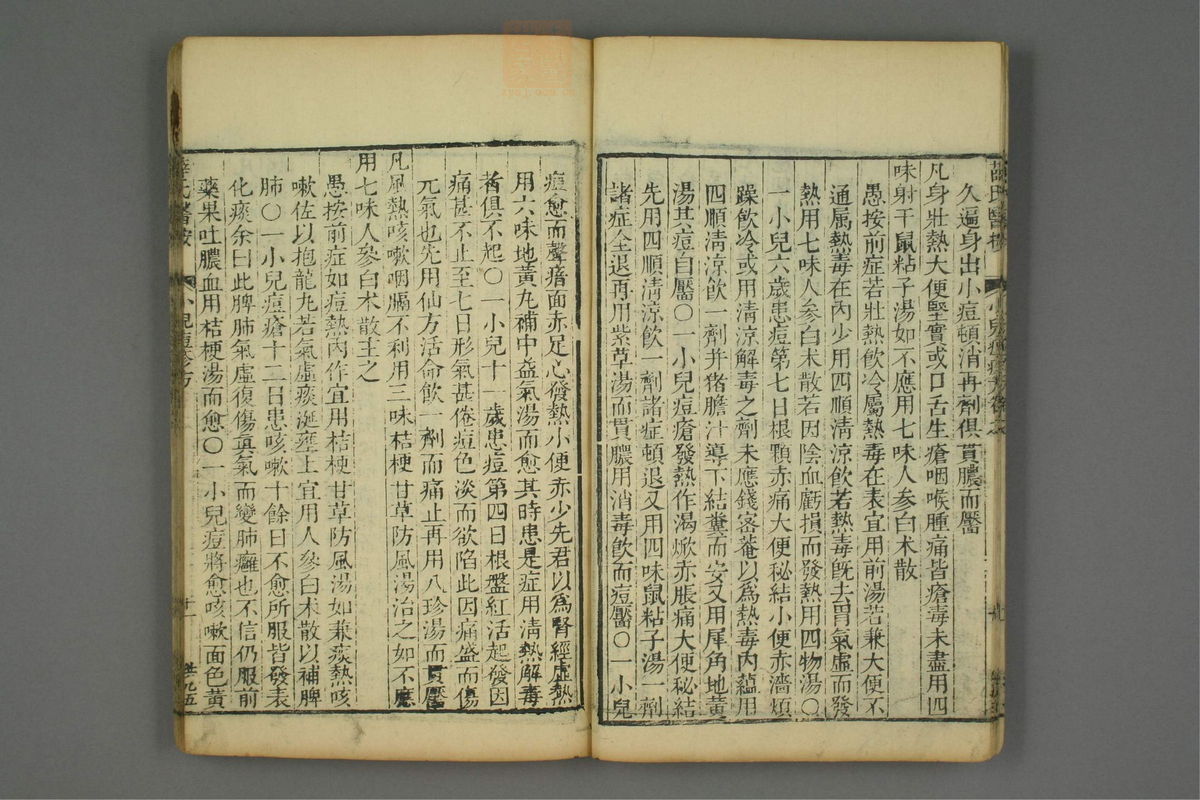 久遍身出小痘頓消再劑俱貫膿而靨
凡身壯熱大便堅實或口舌生瘡咽喉腫痛皆瘡毒未盡用四
味射干鼠粘子湯如不應用七味人參白朮散
愚按前症若壯熱飲冷屬熱毒在表宜用前湯若兼大便不
通屬熱毒在內少用四順清涼飲若熱毒旣去胃氣虛而發
熱用七味人參白朮散若因陰血虧損而發熱用四物湯〇
一小兒六歲患痘第七日根顆赤痛大便秘結小便赤濇煩
躁飲冷或用清涼解毒之劑未應錢宻菴以爲熱毒內蘊用
四順淸涼飲一劑并猪膽汁導下結糞而安又用犀角地黃
湯其痘自靨〇一小兒痘瘡發熱作渴焮赤脹痛大便秘結
先用四順淸涼飲一劑諸症頓退又用四味鼠粘子湯一劑
諸症全退再用紫草湯而貫膿用消毒飲而痘靨〇一小兒
痘愈而聲瘖面赤足心發熱小便赤少先君以爲腎經虛熱
用六味地黃丸補中益氣湯而愈其時患是症用淸熱解毒
者俱不起〇一小兒十一歲患痘第四日根盤紅活起發因
痛甚不止至七日形氣甚倦痘色淡而欲陷此因痛盛而傷
元氣也先用仙方活命飲一劑而痛止再用八珍湯而貫靨
凡風熱咳嗽咽膈不利用三味桔梗甘草防風湯治之如不應
用七味人參白朮散主之
愚按前症如痘熱內作宜用桔梗甘草防風湯如兼痰熱咳
嗽佐以抱龍丸若氣虛痰涎壅上宜用人參白朮散以補脾
肺〇一小兒痘瘡十二日患咳嗽十餘日不愈所服皆發表
化痰余曰此脾肺氣虛復傷眞氣而變肺癰也不信仍服前
藥果吐膿血用桔梗湯而愈〇一小兒痘將愈咳嗽面色黃
薛氏醫按